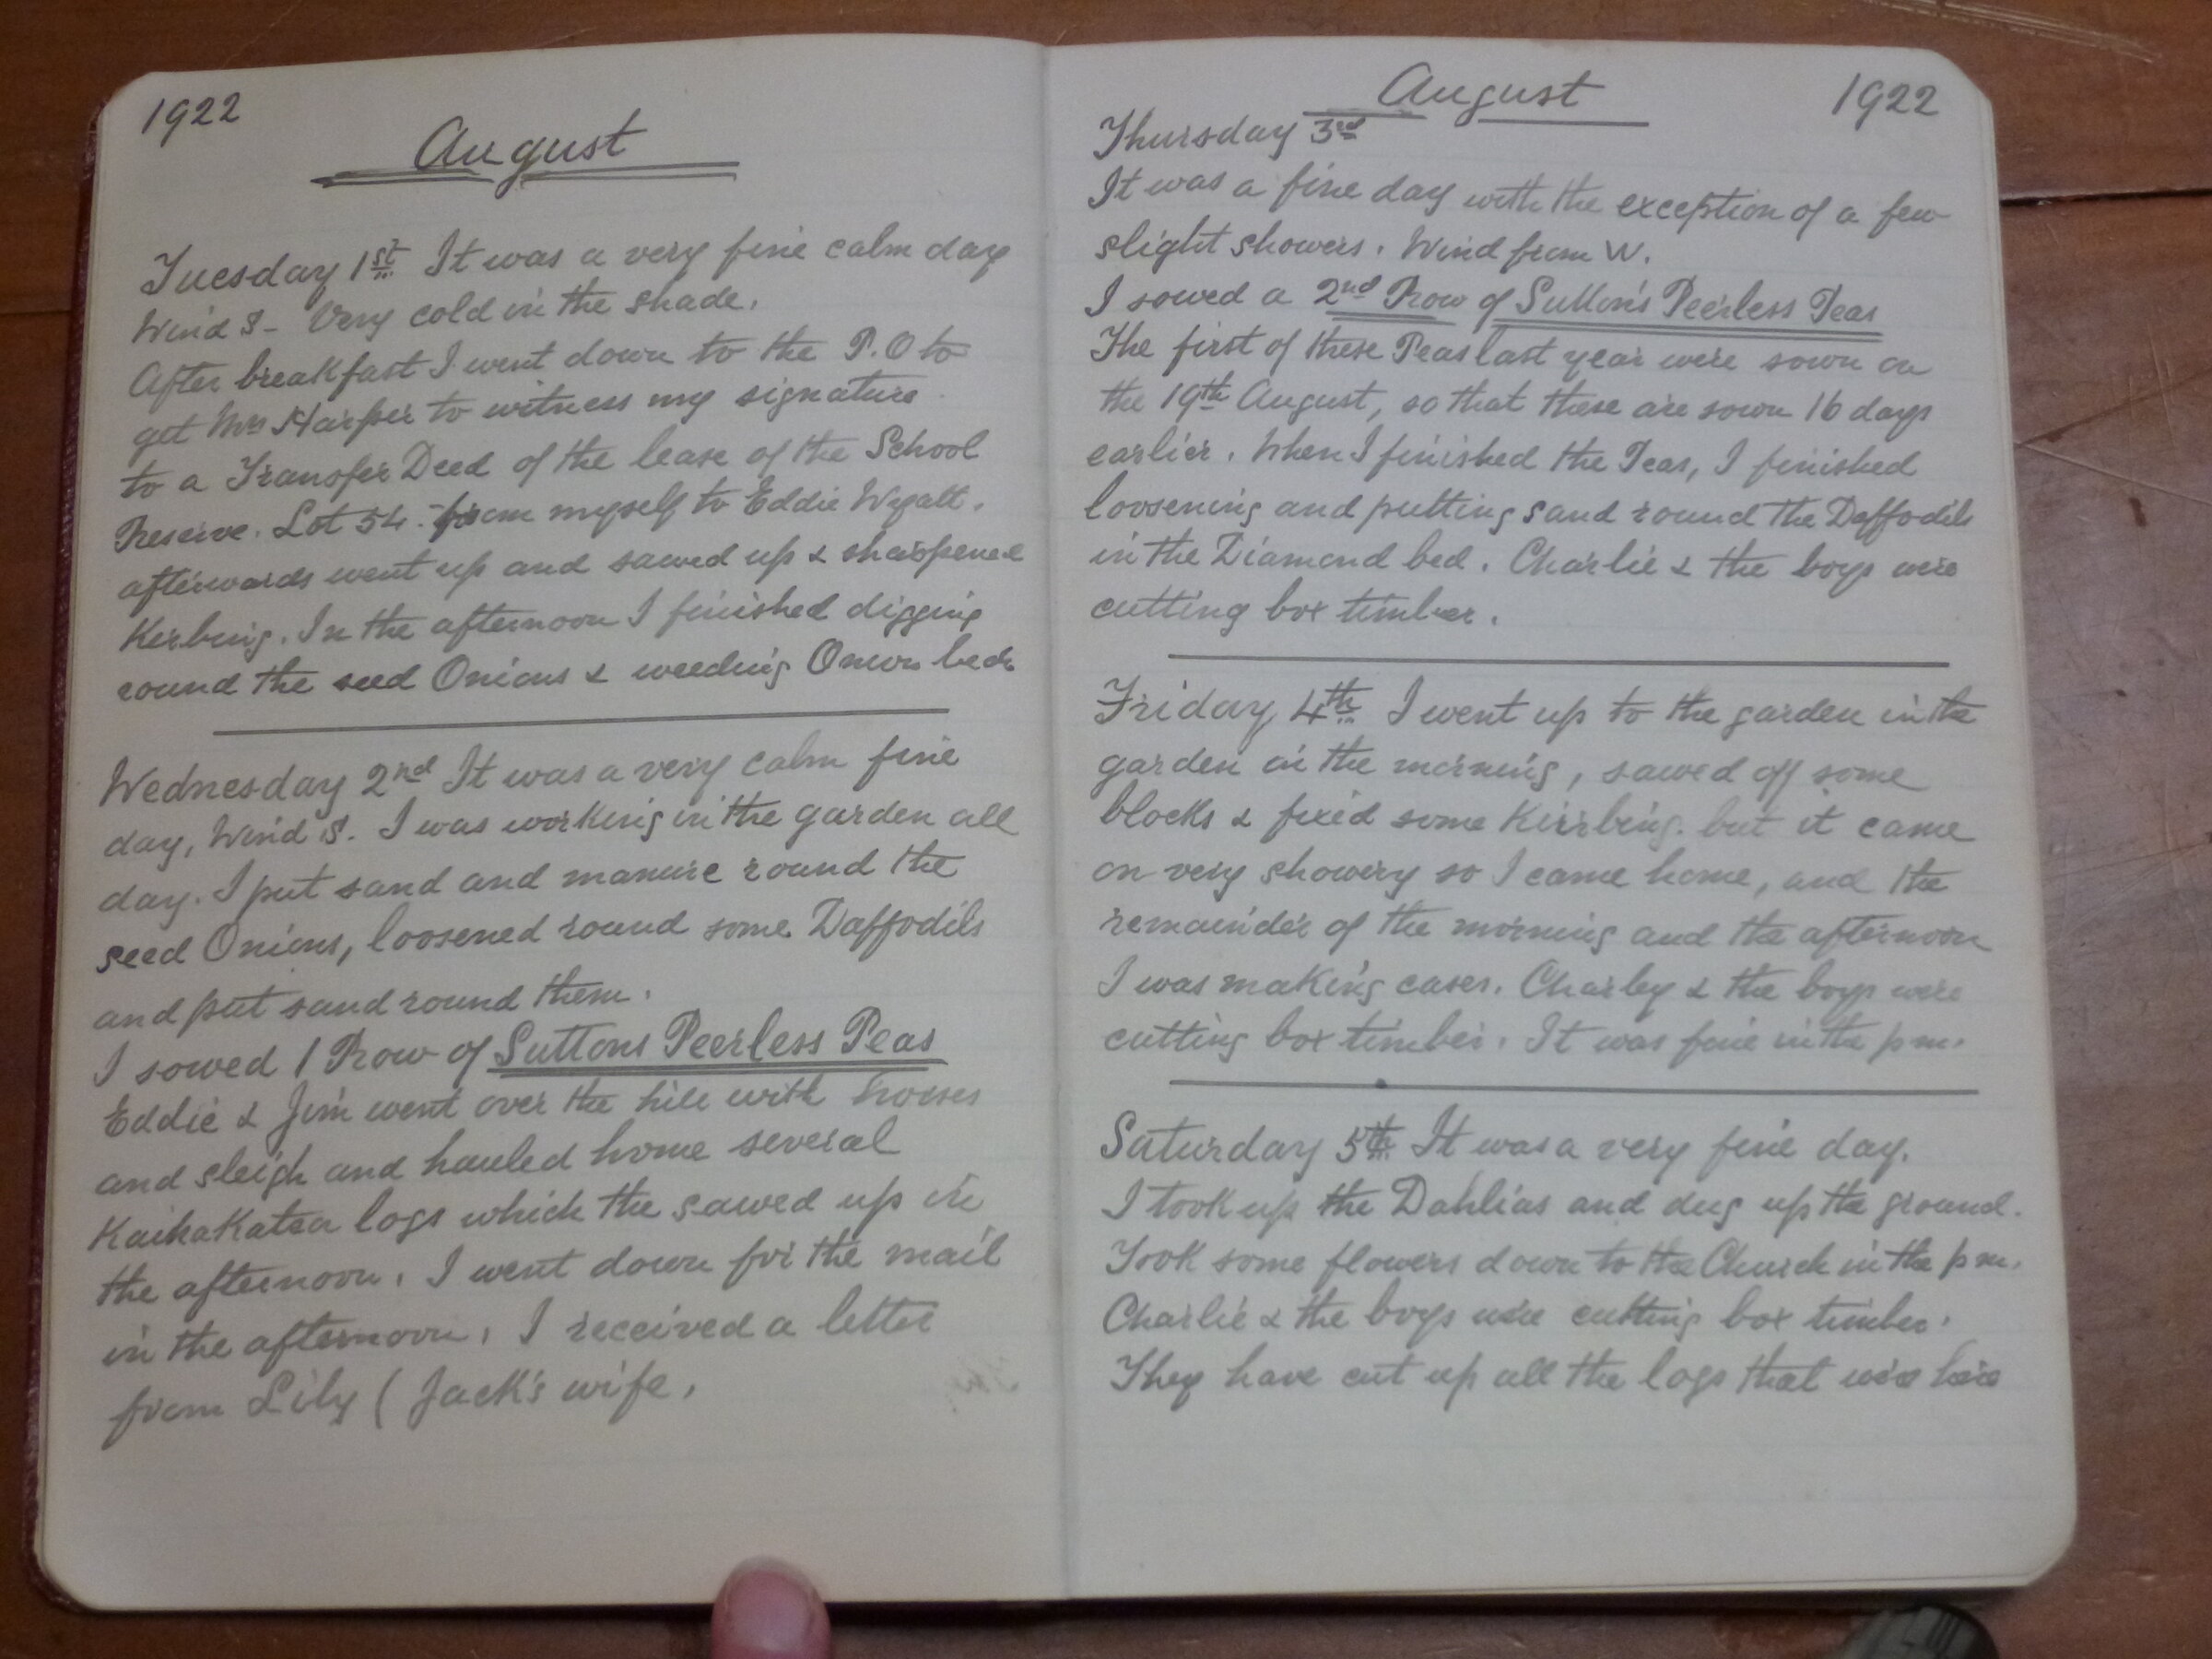 1922
August
Tuesday 1st It was a very fine calm day
Wind S - Very cold in the shade.
After breakfast I went down to the P.O to
get Mrs Harper to witness my signature
to a Transfer Deed of the lease of the School
Reserve. Lot 54. from myself to Eddie Wyatt.
afterwards went up and sawed up & sharpened
Kerbing. In the afternoon I finished digging
round the seed Onions & weeding Onion beds
Wednesday 2nd It was a very calm fine
day, Wind S. I was working in the garden all
day. I put sand and manure round the
seed Onions, loosened round some Daffodils
and put sand round them.
I sowed 1 Row of Suttons Peerless Peas
Eddie & Jim went over the hill with horses
and sleigh and hauled home several
Kaikakatea logs which the sawed up in
the afternoon. I went down for the mail
in the afternoon. I received a letter
from Lily ( Jack's wife.
August 1922
Thursday 3rd
It was a fine day with the exception of a few
slight showers. Wind from W.
I sowed a 2nd Row of Sutton's Peerless Peas
The first of these Peas last year were sown on
the 19th August, so that these are sown 16 days
earlier. When I finished the Peas, I finished
loosening and putting sand round the Daffodils
in the Diamond bed. Charlie & the boys were
cutting box timber.
Friday, 4th I went up to the garden in the
garden in the morning, sawed off some
blocks & fixed some Kerrbing. but it came
on very showery so I came home, and the
remainder of the morning and the afternoon
I was making cases. Charley & the boys were
cutting box timber. It was fine in the pm.
Saturday 5th It was a very fine day.
I took up the Dahlias and dug up the ground.
Took some flowers down to the Church in the pm.
Charlie & the boys were cutting box timber.
They have cut up all the logs that were here